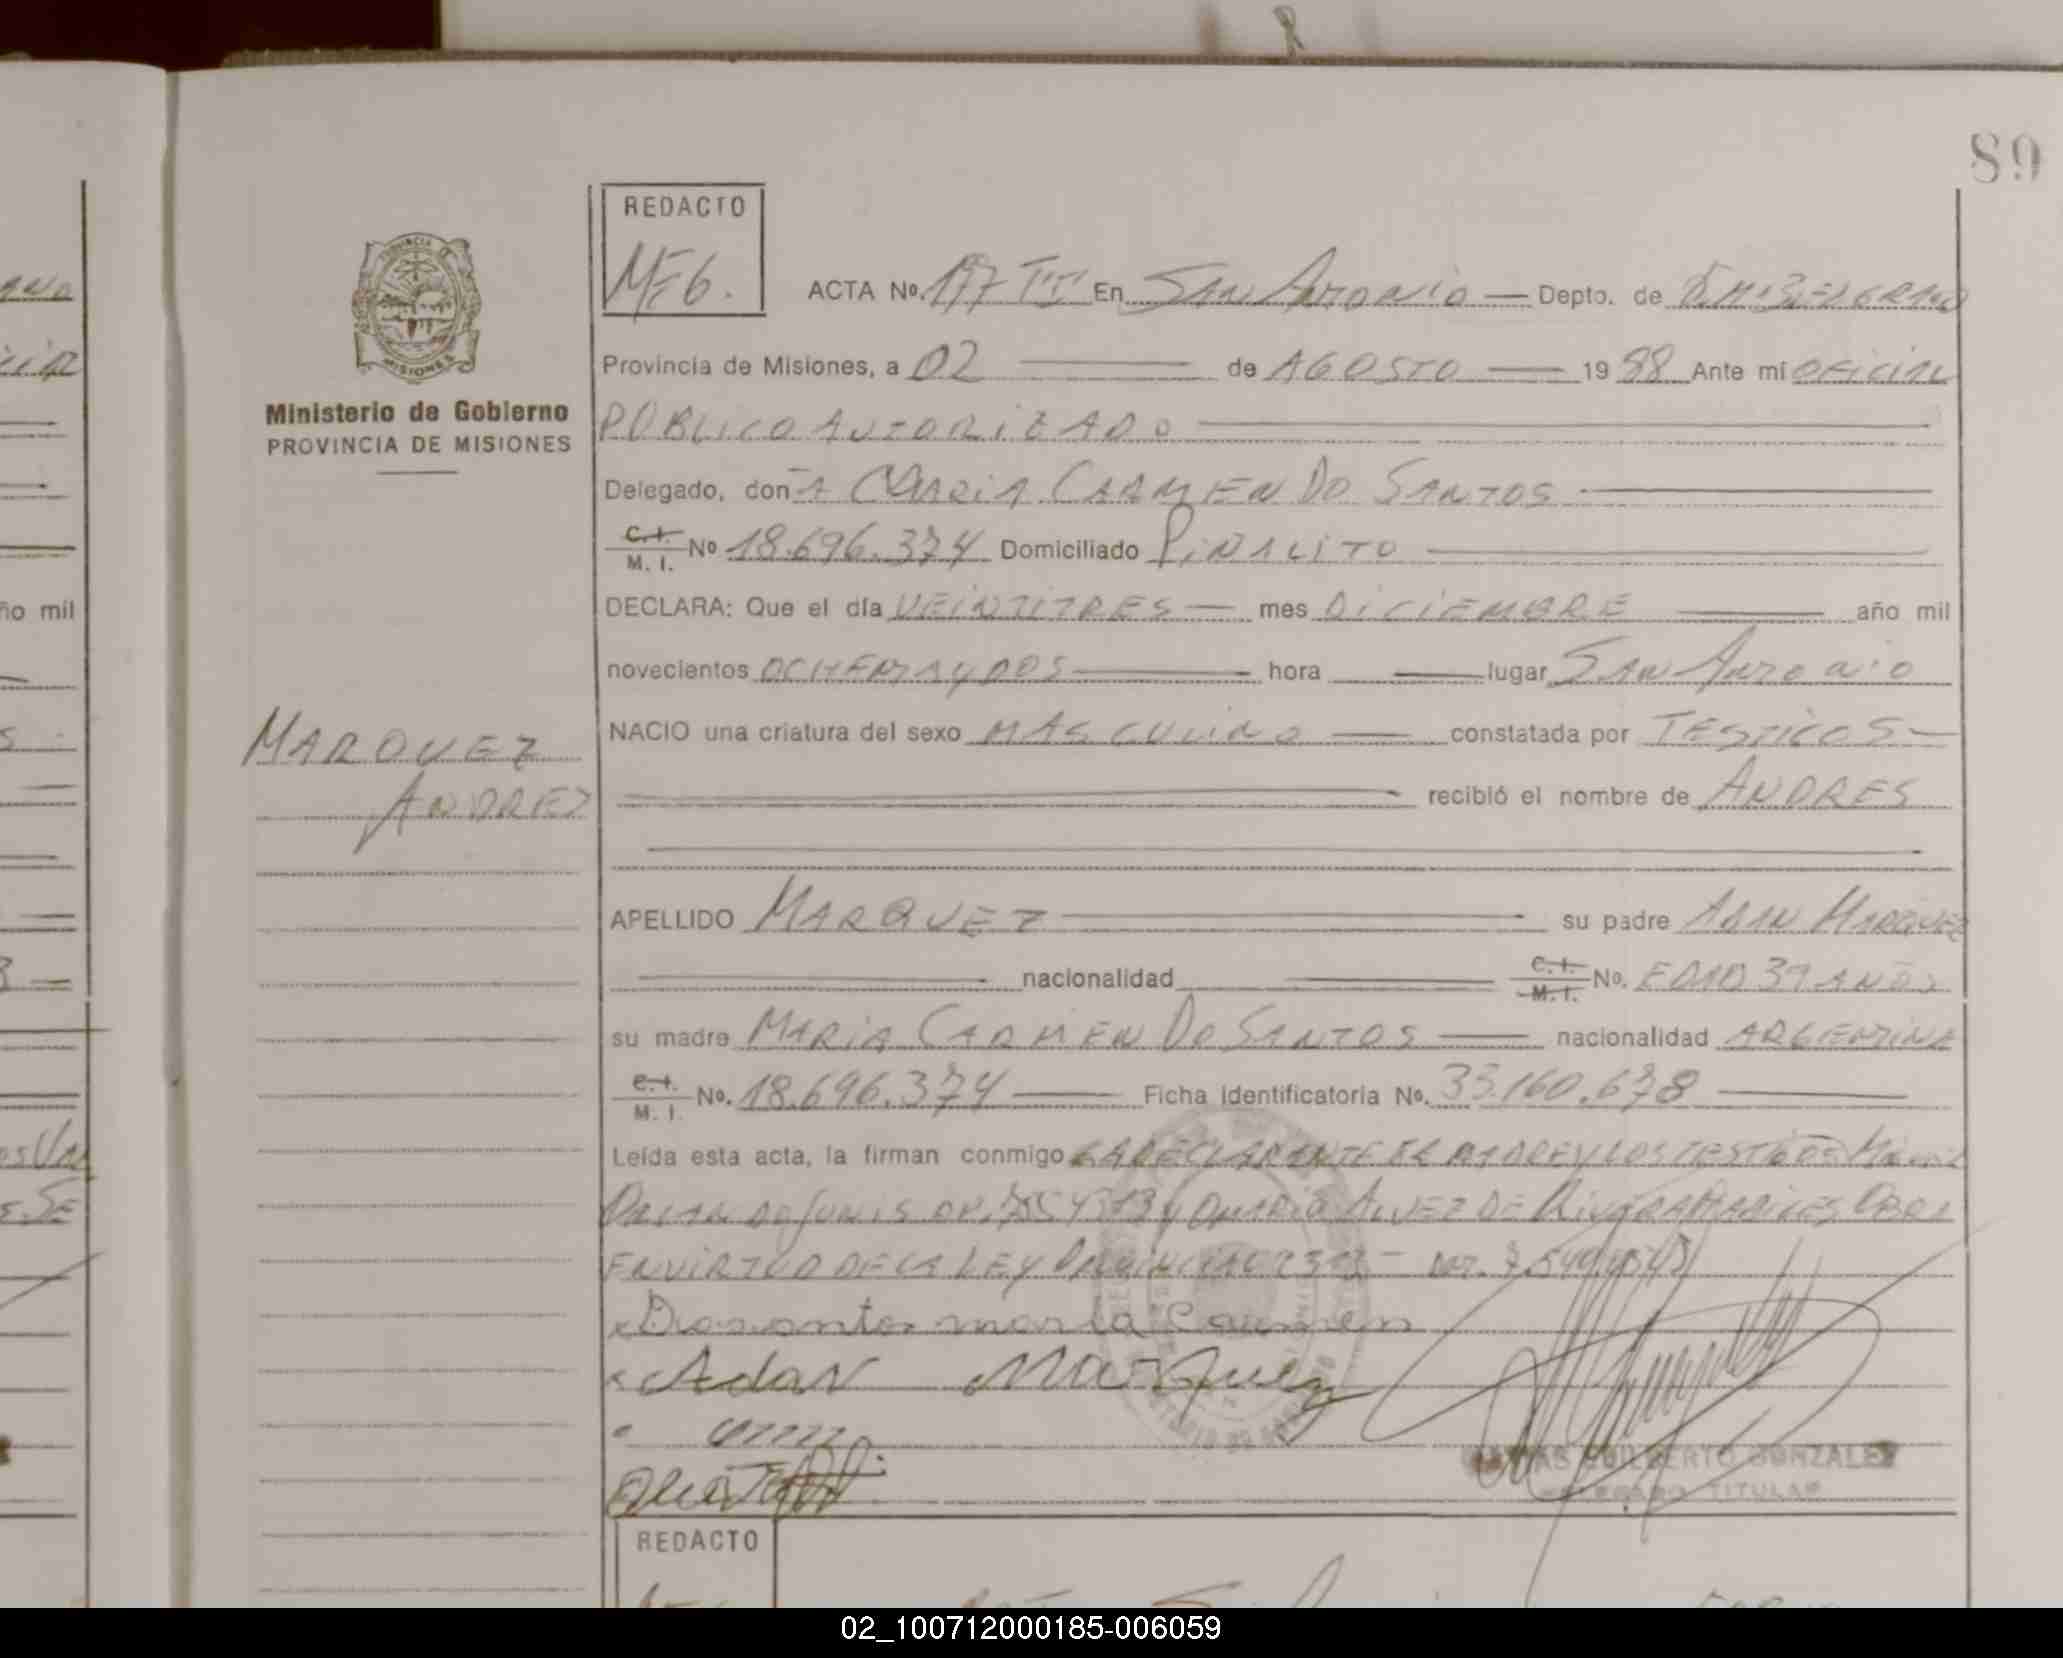 89
REDACTO
MFG.
ACTA Nº. 177 TII En San Antonio Depto. de Gral. Belgrano
Provincia de Misiones, a 02 de AGOSTO 1988 Ante mí OFICIAL
PUBLICO AUTORIZADO
Ministerio de Gobierno
PROVINCIA DE MISIONES
Delegado, don A MARIA CARMEN DO SANTOS
C.I. M. I. Nº 18.696.374 Domiciliado PIÑALITO
DECLARA: Que el día VEINTITRES mes DICIEMBRE año mil
novecientos OCHENTA Y DOS hora lugar SAN ANTONIO
NACIO una criatura del sexo MASCULINO constatada por TESTIGOS
MARQUEZ
ANDREZ
recibió el nombre de ANDRES
APELLIDO MARQUEZ su padre ADAN MARQUEZ
nacionalidad C.I. M.I. No. EDAD 39 AÑOS
su madre MARIA CARMEN DO SANTOS nacionalidad ARGENTINA
C.I. M. I. No. 18.696.374 Ficha Identificatoria No. 33.160.678
Leída esta acta, la firman conmigo LA DECLARANTE EL PADRE Y LOS TESTIGOS
ALVEZ DE RIVERA
EN VIRTUD DE LA LEY PROVINCIAL
Dosantos maria Carmen
Adan Marquez
MATIAS GUILBERTO GONZALEZ
DELEGADO TITULAR
REDACTO
ño mil
PROVINCIA DE
MISIONES
02_100712000185-006059